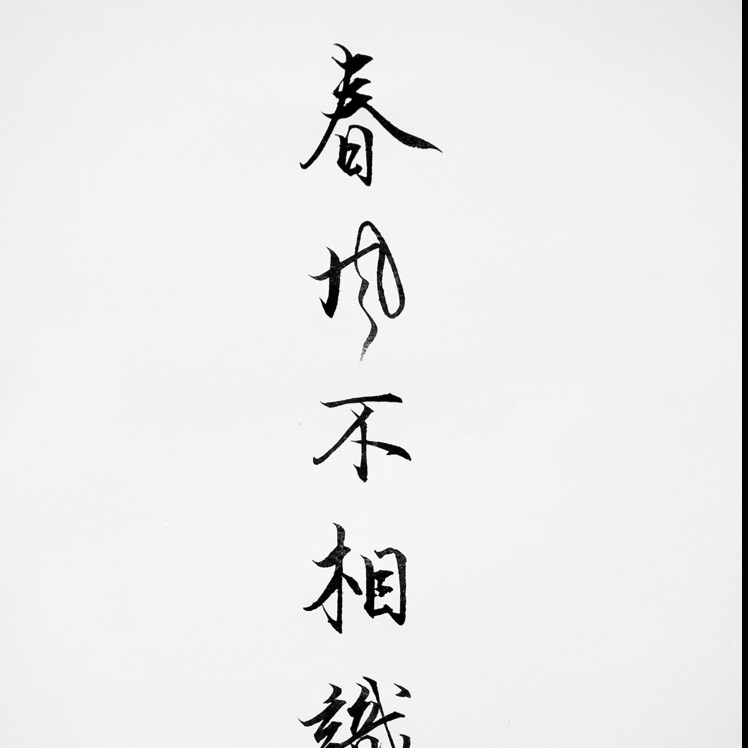 春风不相識